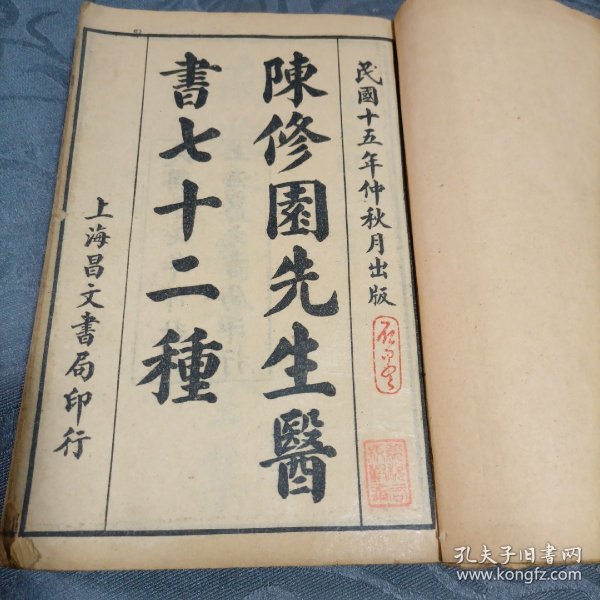 民國十五年仲秋月出版
陳修園先生醫
書七十二種
上海昌文書局印行
孔夫子旧书网
www.kongfz.com